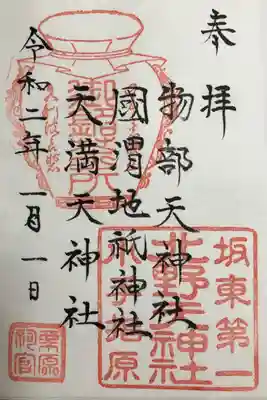 奉拝
物部天神社
國渭地祇神社
天満天神社
令和二年一月一日
坂東第一
北野天神社
小手指原
栗原
祠官